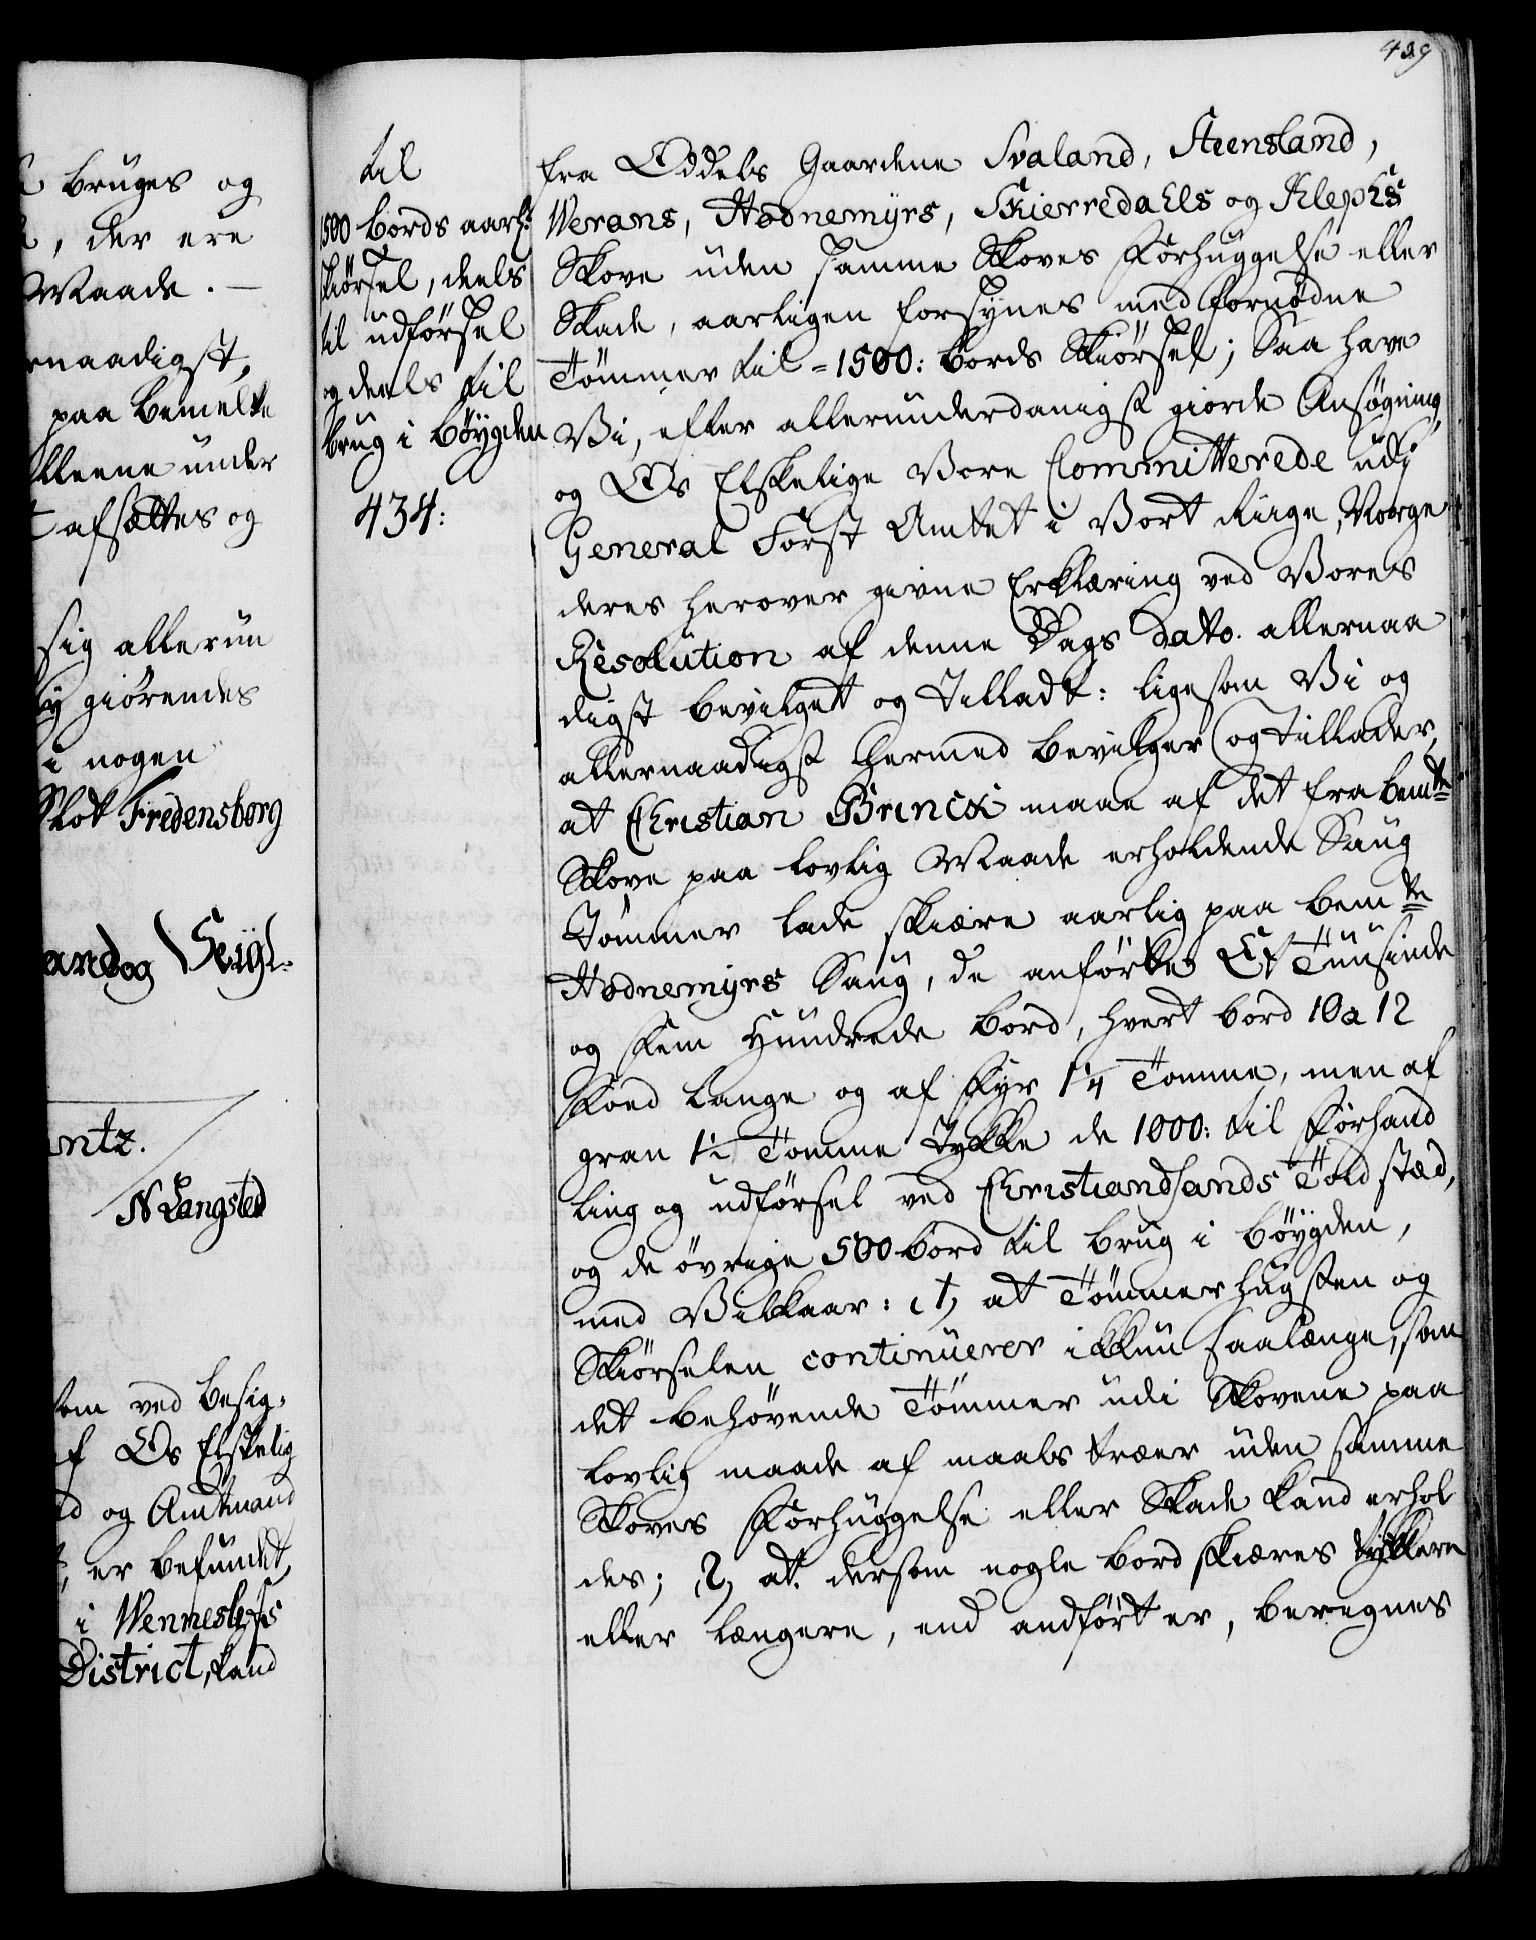 bruges og
, der ere
Maade. —
rnaadigst,
paa bemelte
lleene under
afsættes og
sig allerun
giörendes
i nogen
Slot Fredensborg
N Langsted
om ved besig,
f Os Elskelig
d og Amtmand
, er befundet,
i Wennesløfs
District, kand
439
til
1500 bords aarl:
skiörsel, deels
til udförsel
og deels til
brug i böygden
434:
fra Oddels Gaardene Svaland, Steensland,
Werans, Hodnemÿrs, Skierredahls og Klephs
Skove uden samme Skoves Forhuggelse eller
Skade, aarligen forsynes med fornødne
Tömmer til = 1500: bords Skiörsel; Saa have
Vi, efter allerunderdanigst giorde Ansøgning,
og Os Elskelige Vore Committerede udi
General Forst Amtet i Vort Riige Norge
deres herover givne Erklæring ved Vores
Resolution af denne Dags dato. allernaa
digst bevilget og tilladt: ligesom Vi og
allernaadigst hermed bevilger og tillader,
at Christian Brinck maae af det fra bemte
Skove paa lovlig Maade erholdende Saug
Tömmer lade skiære aarlig paa bemte
Hodnemÿrs Saug, de anførte Et Tuusinde
og Fem Hundrede bord, hvert bord 10 a 12
Foed lange og af Fyr 1¼ Tomme, men af
gran 1½ Tomme tykke de 1000: til Forhand
ling og udförsel ved Christiandsands Told stæd,
og de övrige 500 bord til brug i böygden,
med Vilkaar: 1, at Tömmerhugsten og
Skiörselen continuerer ikkun saalænge, som
det behövende Tömmer udi Skovene paa
lovlig maade af maals træer uden samme
Skoves Forhuggelse eller Skade kand erhol
des; 2, at. dersom nogle bord skiæres tykkere
eller længere, end andført er, beregnes